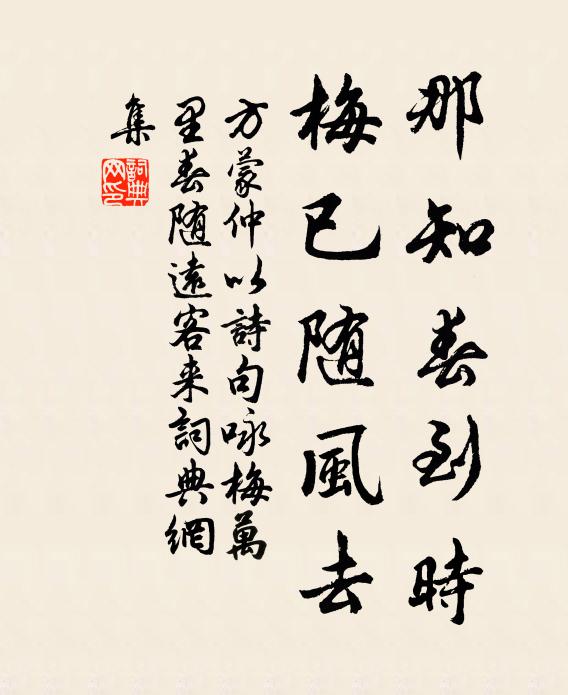 那知春到時
梅已随風去
方蒙仲以詩句咏梅萬
里春随遠客来詞典網
集
詞典
网印